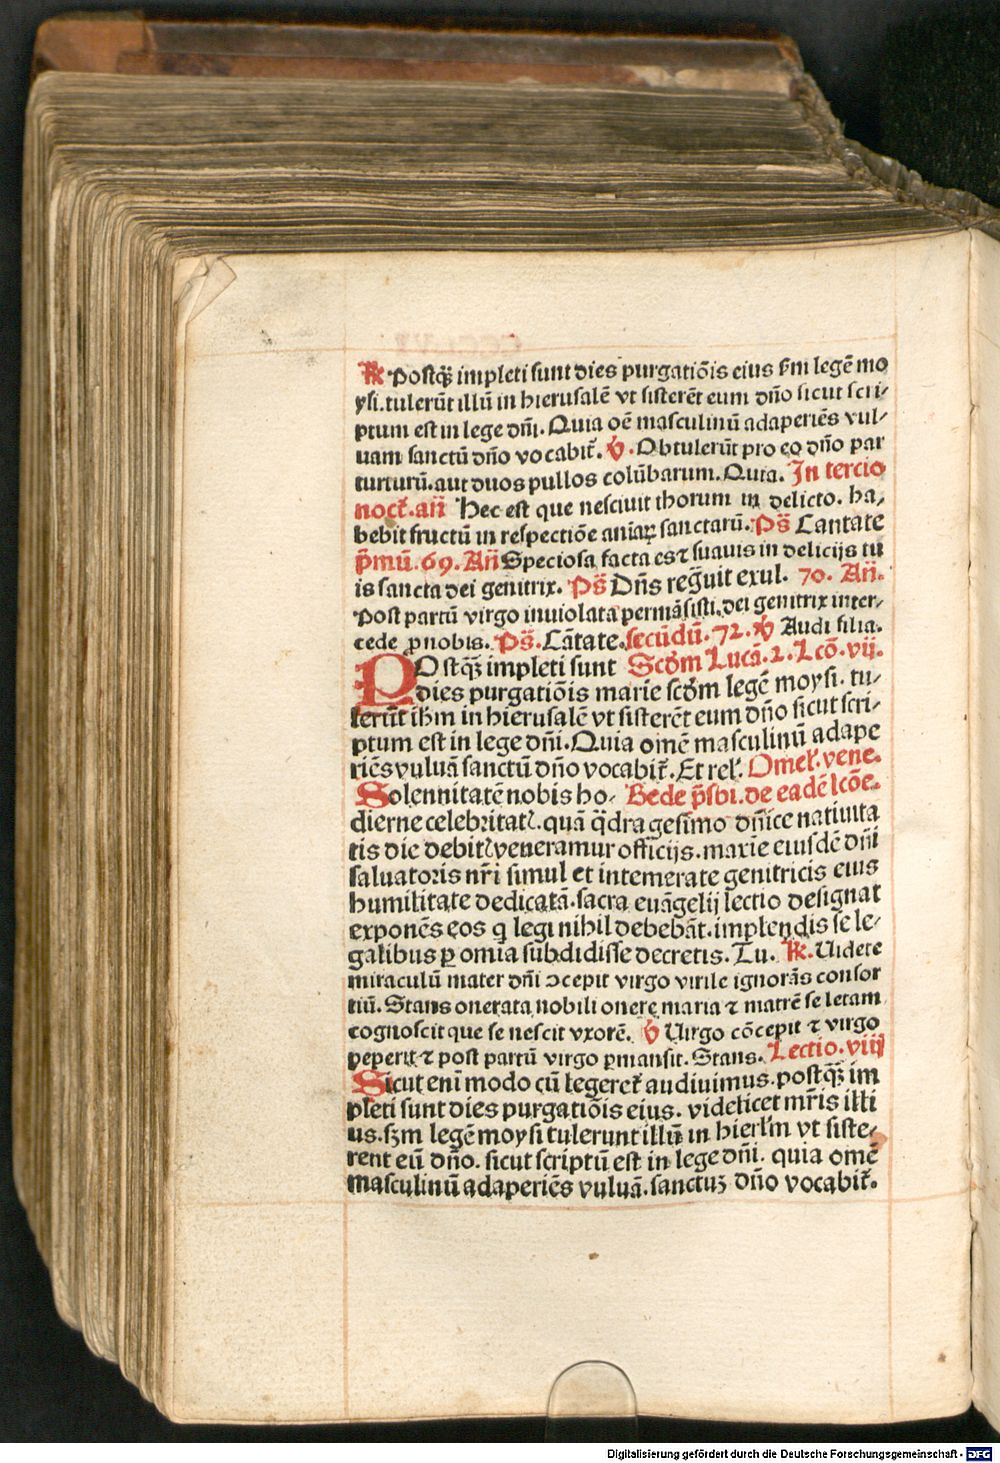 ℟ Postq̃ impleti sunt dies purgatiõis eius ẜm legẽ mo
ysi. tulerũt illũ in hierusalẽ vt sisterẽt eum dño sicut scri⸗
ptum est in lege dñi. Quia oẽ masculinũ adaperiẽs vul⸗
uam sanctũ dño vocabit᷑. ℣. Obtulerũt pro eo dño par
turturũ. aut duos pullos colũbarum. Quia. In tercio
noct᷑. añ Hec est que nesciuit thorum in delicto. ha⸗
bebit fructũ in respectiõe aniaꝝ sanctarũ. Ps̃ Cantate
p̃mũ. 69. Añ Speciosa facta es ⁊ suauis in delicijs tu
is sancta dei genitrix. Ps̃ Dñs reg̃uit exul. 70. Añ.
Post partũ virgo inuiolata permãsisti. dei genitrix inter⸗
cede ꝓ nobis. Ps̃. Cãtate. secũdũ. 72. ℣ Audi filia.
POstq̃ impleti sunt Scđm Lucã. 2. Lcõ. vij.
dies purgatiõis marie scđm legẽ moysi. tu⸗
lerũt ih̃m in hierusalẽ vt sisterẽt eum dño sicut scri⸗
ptum est in lege dñi. Quia omẽ masculinũ adape
riẽs vuluã sanctũ dño vocabit᷑. Et rel᷑. Omel᷑. vene.
Solennitatẽ nobis ho⸗ Bede p̃sbi. de eadẽ lcõe.
dierne celebritat᷑. quã q̃dragesimo dñice natiuita
tis die debit᷑ veneramur officijs. marie eiusdẽ dñi
saluatoris nr̃i simul et intemerate genitricis eius
humilitate dedicatã. sacra euãgelij lectio designat
exponẽs eos q̃ legi nihil debebãt. implendis se le⸗
galibus ꝑ omia subdidisse decretis. Tu. ℟. Uidete
miraculũ mater dñi ↄcepit virgo virile ignorãs consor
tiũ. Stans onerata nobili onere maria ⁊ matrẽ se letam
cognoscit que se nescit vxorẽ. ℣ Uirgo cõcepit ⁊ virgo
peperit ⁊ post partũ virgo ꝑmansit. Stans. Lectio. viij
Sicut enĩ modo cũ legeret᷑ audiuimus. postq̃ im
pleti sunt dies purgatiõis eius. videlicet mr̃is illi
us. ẜm legẽ moysi tulerunt illũ in hierlm̃ vt siste⸗
rent eũ dño. sicut scriptũ est in lege dñi. quia omẽ
masculinũ adaperiẽs vuluã. sanctuꝫ dño vocabit᷑.
Digitalisierung gefördert durch die Deutsche Forschungsgemeinschaft - DFG